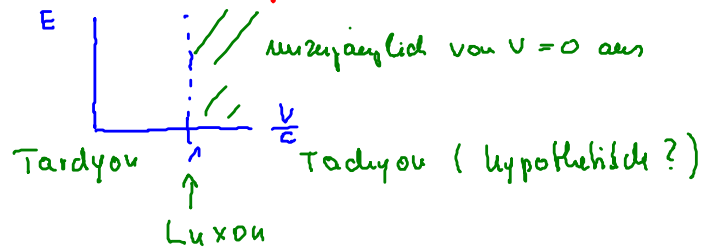 E
unzugänglich von v = 0 aus
v/c
1
Tardyon
Tachyon ( hypothetisch ? )
Luxon